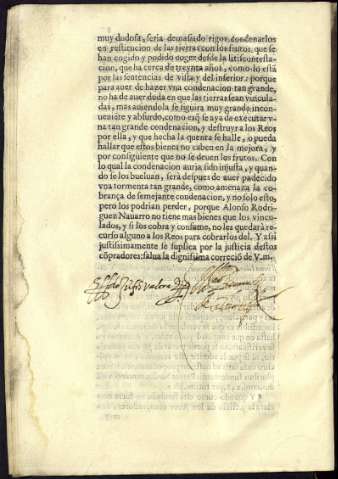 muy dudosa, seria demasiado rigor condenarlos
en restitucion de las tierras con los frutos, que se
han cogido y podido coger desde la litiscontesta-
cion, que ha cerca de treynta años, como lo està
por las sentencias de vista y del inferior: porque
para auer de hazer vna condenacion tan grande,
no ha de auer duda en que las tierras sean vincula-
das, mas auiendola se siguira muy grande incon-
ueniẽte y absurdo, como es q̃ se aya de executar v-
na tan grande condenacion, y destruyr a los Reos
por ella, y que hecha la quenta se halle, o pueda
hallar que estos bienes no caben en la mejora, y
por consiguiente que no se deuen los frutos. Con
lo qual la condenacion auria sido injusta, y quan-
do se los bueluan, serà despues de auer padecido
vna tormenta tan grande, como amenaza la co-
brança de semejante condenacion, y no solo esto,
pero los podrian perder, porque Alonso Rodri-
guez Nauarro no tiene mas bienes que los vincu-
lados, y si los cobra y consume, no les quedarà re-
curso alguno a los Reos para cobrarlos del. Y assi
justissimamente se suplica por la justicia destos
cõpradores: salua la dignissima correciõ de V.m.
valera